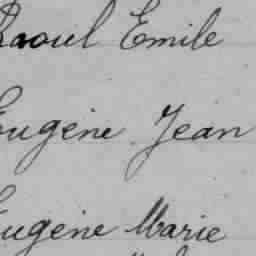 Raoul Emile
Eugène Jean
Eugène Marie